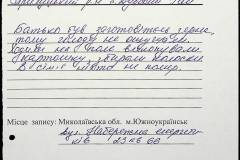 Батько був заготовітель зерна,
тому голоду не відчували.
Ходили на поле викопували
картошку, збирали колоски
В сім'ї ніхто не помер.
Місце запису: Миколаївська обл. м.Южноукраїнськ
вул. Набережна енергети-
ків 23 кв 66